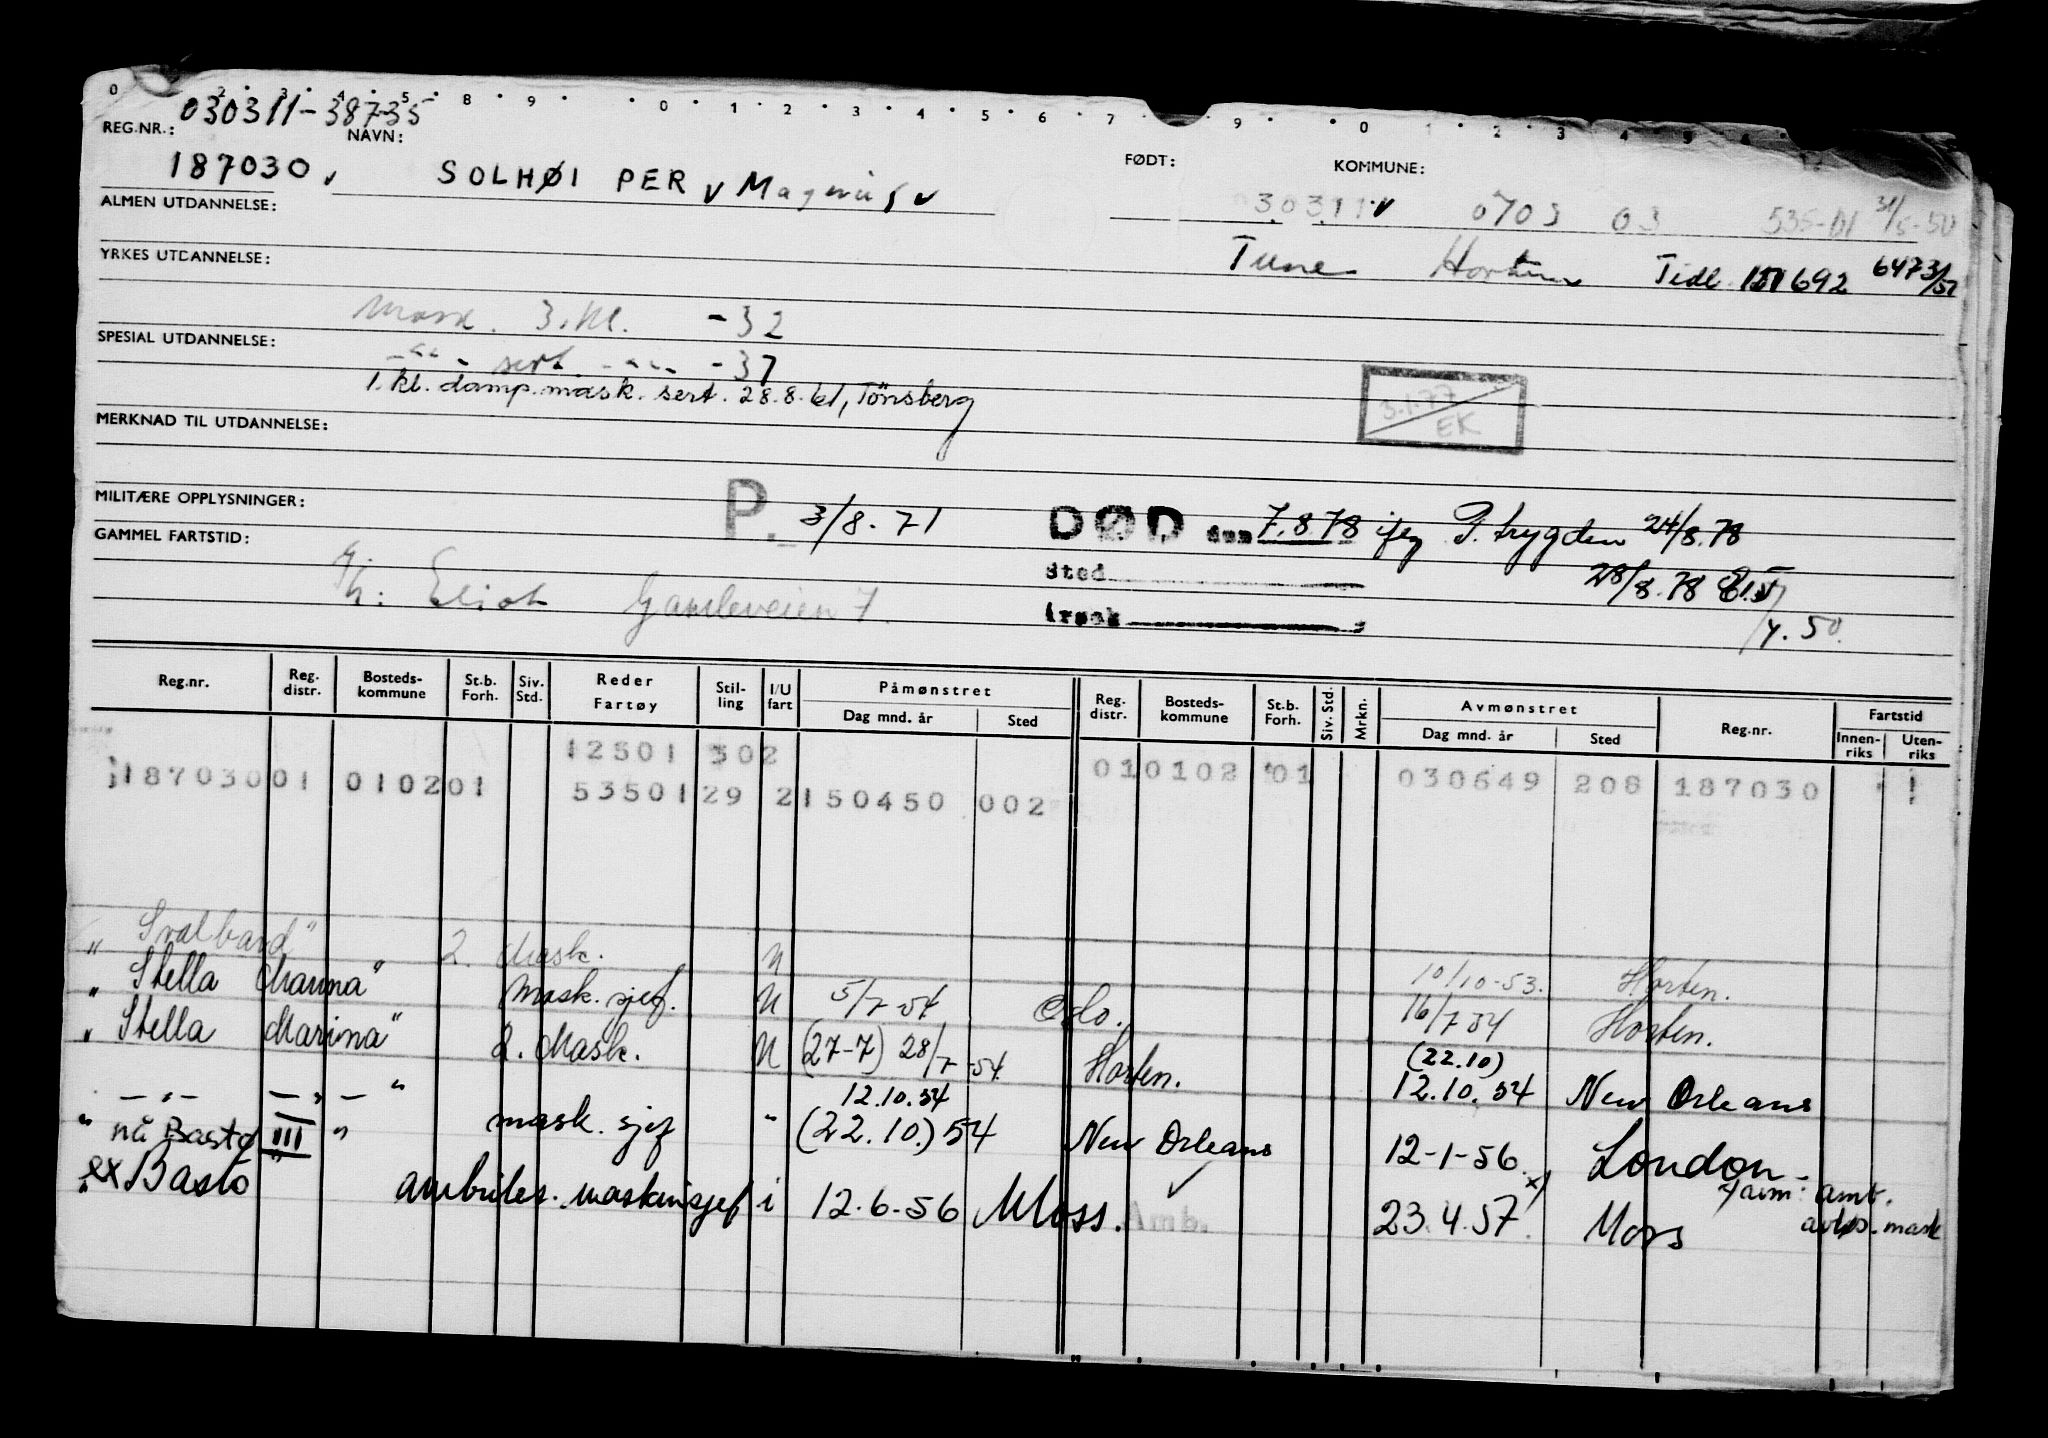 030311-38735
REG.NR.: NAVN: FØDT: KOMMUNE:
187030 SOLHØI PER Magnus 30311 0703 03 535-01 31/5-50
ALMEN UTDANNELSE:
Tune Horten Tidl. 151692 6473/57
YRKES UTDANNELSE:
Mask. 3. kl. -32
SPESIAL UTDANNELSE:
-"- sert. -"- -37
1. kl. damp.mask. sert. 28.8.61, Tönsberg
3.1.77
EK
MERKNAD TIL UTDANNELSE:
MILITÆRE OPPLYSNINGER:
P. 3/8.71 DØD den 7.8 78 iføg P.trygden 24/8.78
GAMMEL FARTSTID:
Sted 28/8.78
Gamleveien 7. årsak
4.50
Reg.nr. Reg. distr. Bosteds-kommune St.b. Forh. Siv. Std. Reder Fartøy Stil-ling I/U fart Påmønstret Dag mnd. år Sted Reg. distr. Bosteds-kommune St.b. Forh. Siv. Std. Mrkn. Avmønstret Dag mnd. år Sted Reg.nr. Fartstid Innen-riks Uten-riks
12501 302 010102 01 030649 208 187030
187030 01 0102 01 53501 29 2 150450 002
"Svalbard" 2. Mask. U 10/10-53. Horten.
"Stella Marina" Mask. sjef. U 5/7-54 Oslo. 16/7 54 Horten.
"Stella Marina" 2. Mask. U (27-7) 28/7-54 Horten. (22.10) 12.10.54 New Orleans
-"- -"- " mask. sjef " 12.10.54 (22.10.) 54 New Orleans 12-1-56. London
" nå Bastø III "
ex Bastø" ambules. maskinsjef i 12.6-56 Moss. Amb. 23.4.57 x) Moss
x) avm: amb.
avløs. mask